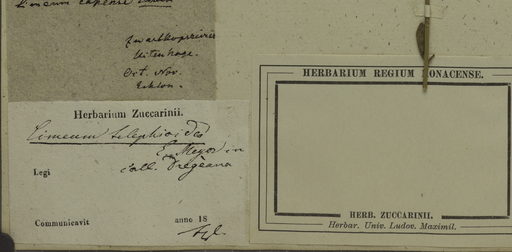 Limeum capense
Zwartkopsrivier
Uitenhage.
Oct. Nov.
Ecklon.
Herbarium Zuccarinii.
Limeum telephioides
E. Meyer in
Legi
coll. Drègeana
Communicavit
anno 18
HERBARIUM REGIUM MONACENSE.
HERB. ZUCCARINII.
Herbar. Univ. Ludov. Maximil.